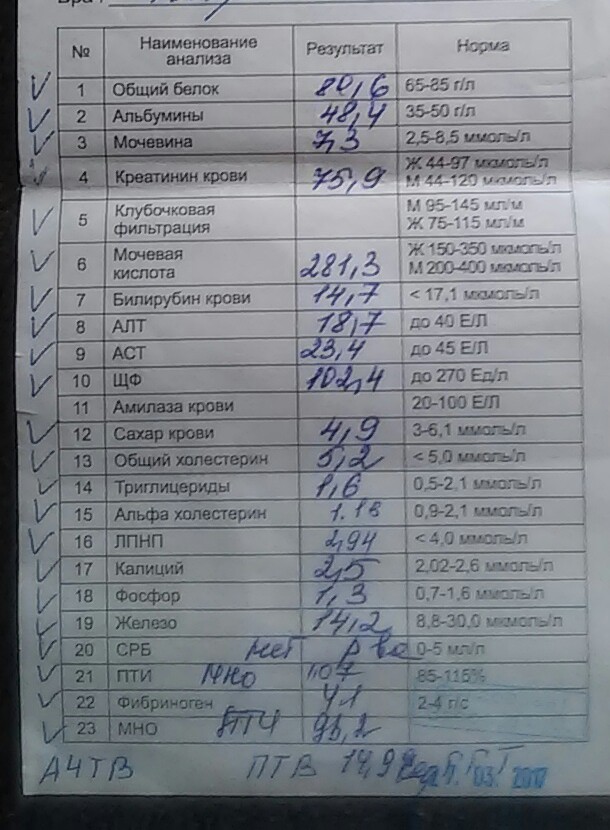 Врач
№ Наименование анализа Результат Норма
1 Общий белок 80,6 65-85 г/л
2 Альбумины 48,4 35-50 г/л
3 Мочевина 7,3 2,5-8,5 ммоль/л
4 Креатинин крови 75,9 Ж 44-97 мкмоль/л
М 44-120 мкмоль/л
5 Клубочковая фильтрация М 95-145 мл/м
Ж 75-115 мл/м
6 Мочевая кислота 281,3 Ж 150-350 мкмоль/л
М 200-400 мкмоль/л
7 Билирубин крови 14,7 < 17,1 мкмоль/л
8 АЛТ 18,7 до 40 Е/Л
9 АСТ 23,4 до 45 Е/Л
10 ЩФ 102,4 до 270 Ед/л
11 Амилаза крови 20-100 Е/Л
12 Сахар крови 4,9 3-6,1 ммоль/л
13 Общий холестерин 5,2 < 5,0 ммоль/л
14 Триглицериды 1,6 0,5-2,1 ммоль/л
15 Альфа холестерин 0,9-2,1 ммоль/л
16 ЛПНП 2,94 < 4,0 ммоль/л
17 Калиций 2,5 2,02-2,6 ммоль/л
18 Фосфор 1,3 0,7-1,6 ммоль/л
19 Железо 14,2 8,8-30,0 мкмоль/л
20 СРБ 0-5 мл/л
21 ПТИ МНО 1,07 85-115%
22 Фибриноген 4,1 2-4 г/с
23 МНО ПТИ 93,2
АЧТВ ПТВ 14,9 03. 2017